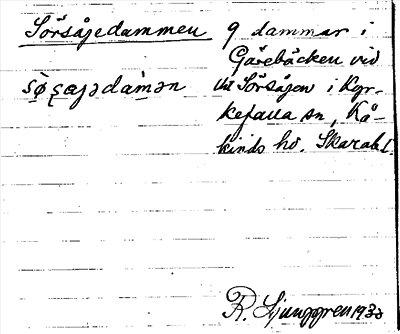 Sörsågedammen
sø̀ʂɑjədàmən
9 dammar i
Gårebäcken vid
Sörsågen i Kyr-
kefalla sn, Kå-
kinds hd. Skarab. l.
R. Ljunggren 1933